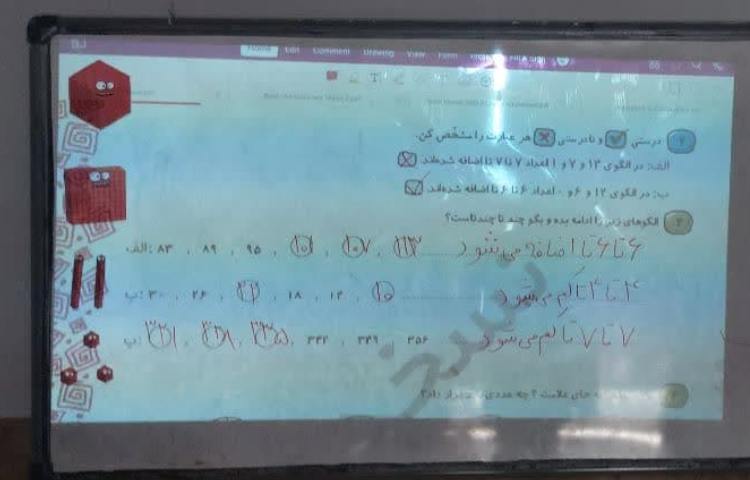 Home Edit Comment Drawing View Form
۲ درستی ✓ و نادرستی ✗ هر عبارت را مشخّص کن.
الف: در الگوی ۱۳ و ۷ و ۱ اعداد ۷ تا ۷ تا اضافه شده‌اند ✗
ب: در الگوی ۱۲ و ۶ و ۰ اعداد ۶ تا ۶ تا اضافه شده‌اند ✓
۳ الگوهای زیر را ادامه بده و بگو چند تا چندتاست؟
الف: ۸۳ , ۸۹ , ۹۵ , ۱۰۱ , ۱۰۷ , ۱۱۳ (۶ تا ۶ تا اضافه می شود)
ب: ۳۰ , ۲۶ , ۲۲ , ۱۸ , ۱۴ , ۱۰ (۴ تا ۴ تا کم می شود)
۳۲۱ , ۳۲۸ , ۳۳۵ , ۳۴۲ , ۳۴۹ , ۳۵۶ (۷ تا ۷ تا کم می شود)
جای علامت ؟ چه عددی